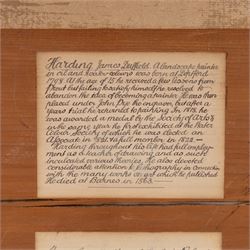 Harding James Duffield. A landscape painter
in oil and water-colours was born at Deptford
1798. At the age of 15 he received a few lessons from
Prout but failing to satisfy himself he resolved to
abandon the idea of becoming a painter. He was then
placed under John Pye the engraver, but after a
years trial he returned to painting. In 1818, he
was awarded a medal by the Society of Arts &
in the same year he first exhibited at the Water
Colour Society of which he was elected an
Associate in 1821. & full member in 1822 —
Harding throughout his life had full employ-
ment as a teacher of drawing and as such
inculcated various theories. He also devoted
considerable attention to Lithography in connection
with the many works of art which he published
He died at Barnes in 1863.